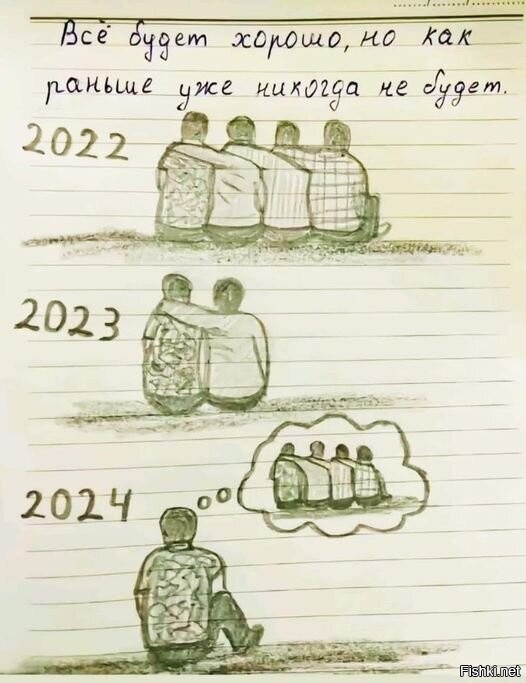 Всё будет хорошо, но как
раньше уже никогда не будет.
2022
2023
2024
Fishki.net